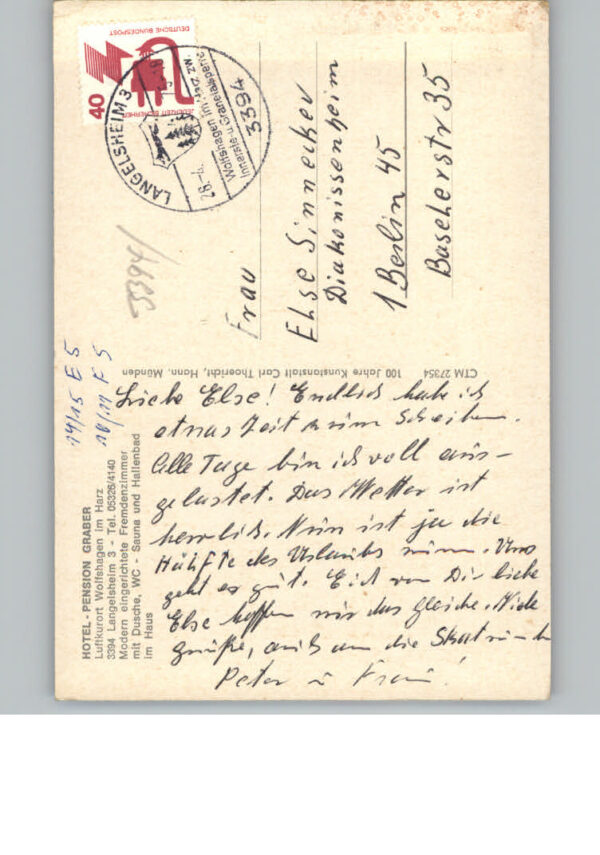 HOTEL - PENSION GRABER
Luftkurort Wolfshagen im Harz
3394 Langelsheim 3 - Tel. 05326/4140
Modern eingerichtete Fremdenzimmer
mit Dusche, WC - Sauna und Hallenbad
im Haus
14/15 E 5
10/11 F 5
Liebe Else! Endlich habe ich
etwas Zeit zum Schreiben.
Alle Tage bin ich voll aus-
gelastet. Das Wetter ist
herrlich. Nun ist ja die
Hälfte des Urlaubs rum. Uns
geht es gut. Auch von Dir liebe
Else hoffen wir das gleiche. Viele
Grüße, auch an die
Peter u
CTM 27354 100 Jahre Kunstanstalt Carl Thoericht, Hann. Münden
DEUTSCHE BUNDESPOST
JEDERZEIT SICHERHEIT
40
3394
LANGELSHEIM 3
Wolfshagen im Harz
Innerste-u.Granetalsperre
3394
Frau
Else Sinnecker
Diakonissenheim
1 Berlin 45
Baselerstr 35